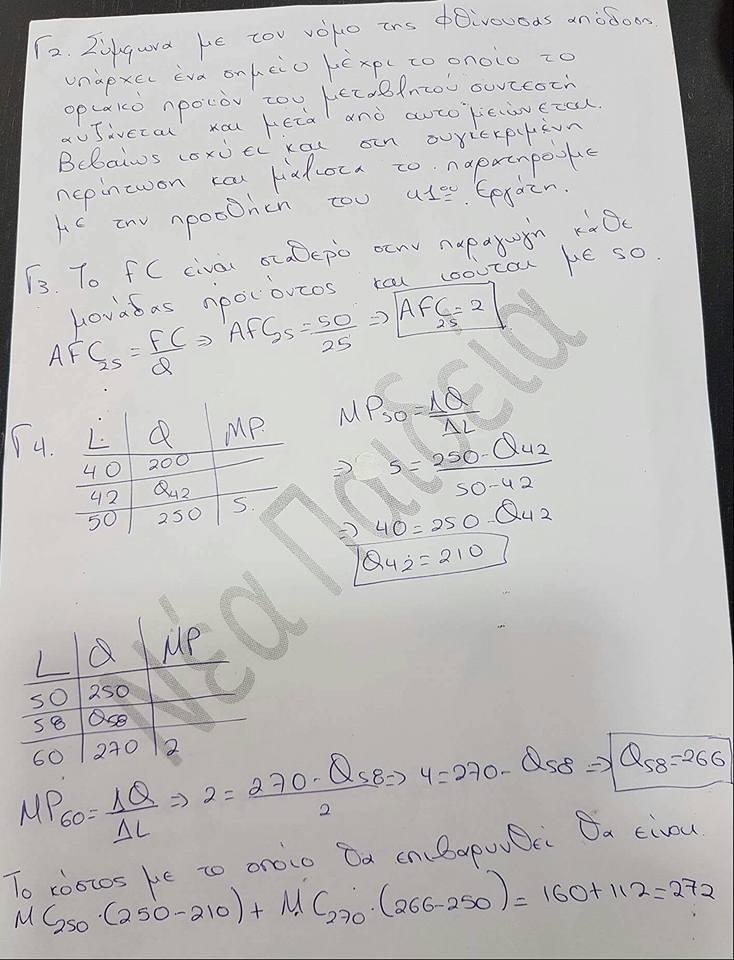 Γ2. Σύμφωνα με τον νόμο της φθίνουσας απόδοσης
υπάρχει ένα σημείο μέχρι το οποίο το
οριακό προϊόν του μεταβλητού συντεστή
αυξάνεται και μετά από αυτό μειώνεται.
Βεβαίως ισχύει και στη συγκεκριμένη
περίπτωση και μάλιστα το παρατηρούμε
με την προσθήκη του 41ου Εργάτη.
Γ3. Το FC είναι σταθερό στην παραγωγή κάθε
μονάδας προϊόντος και ισούται με 50.
AFC25 = FC/Q => AFC25 = 50/25 => AFC25 = 2
Γ4. L Q MP
40 200
42 Q42
50 250 5
MP50 = ΔQ/ΔL
=> 5 = 250 - Q42 / 50 - 42
=> 40 = 250 - Q42
Q42 = 210
L Q MP
50 250
58 Q58
60 270 2
MP60 = ΔQ/ΔL => 2 = 270 - Q58 / 2 => 4 = 270 - Q58 => Q58 = 266
Το κόστος με το οποίο θα επιβαρυνθεί θα είναι
MC250·(250-210) + MC270·(266-250) = 160 + 112 = 272
Νέα Παιδεία